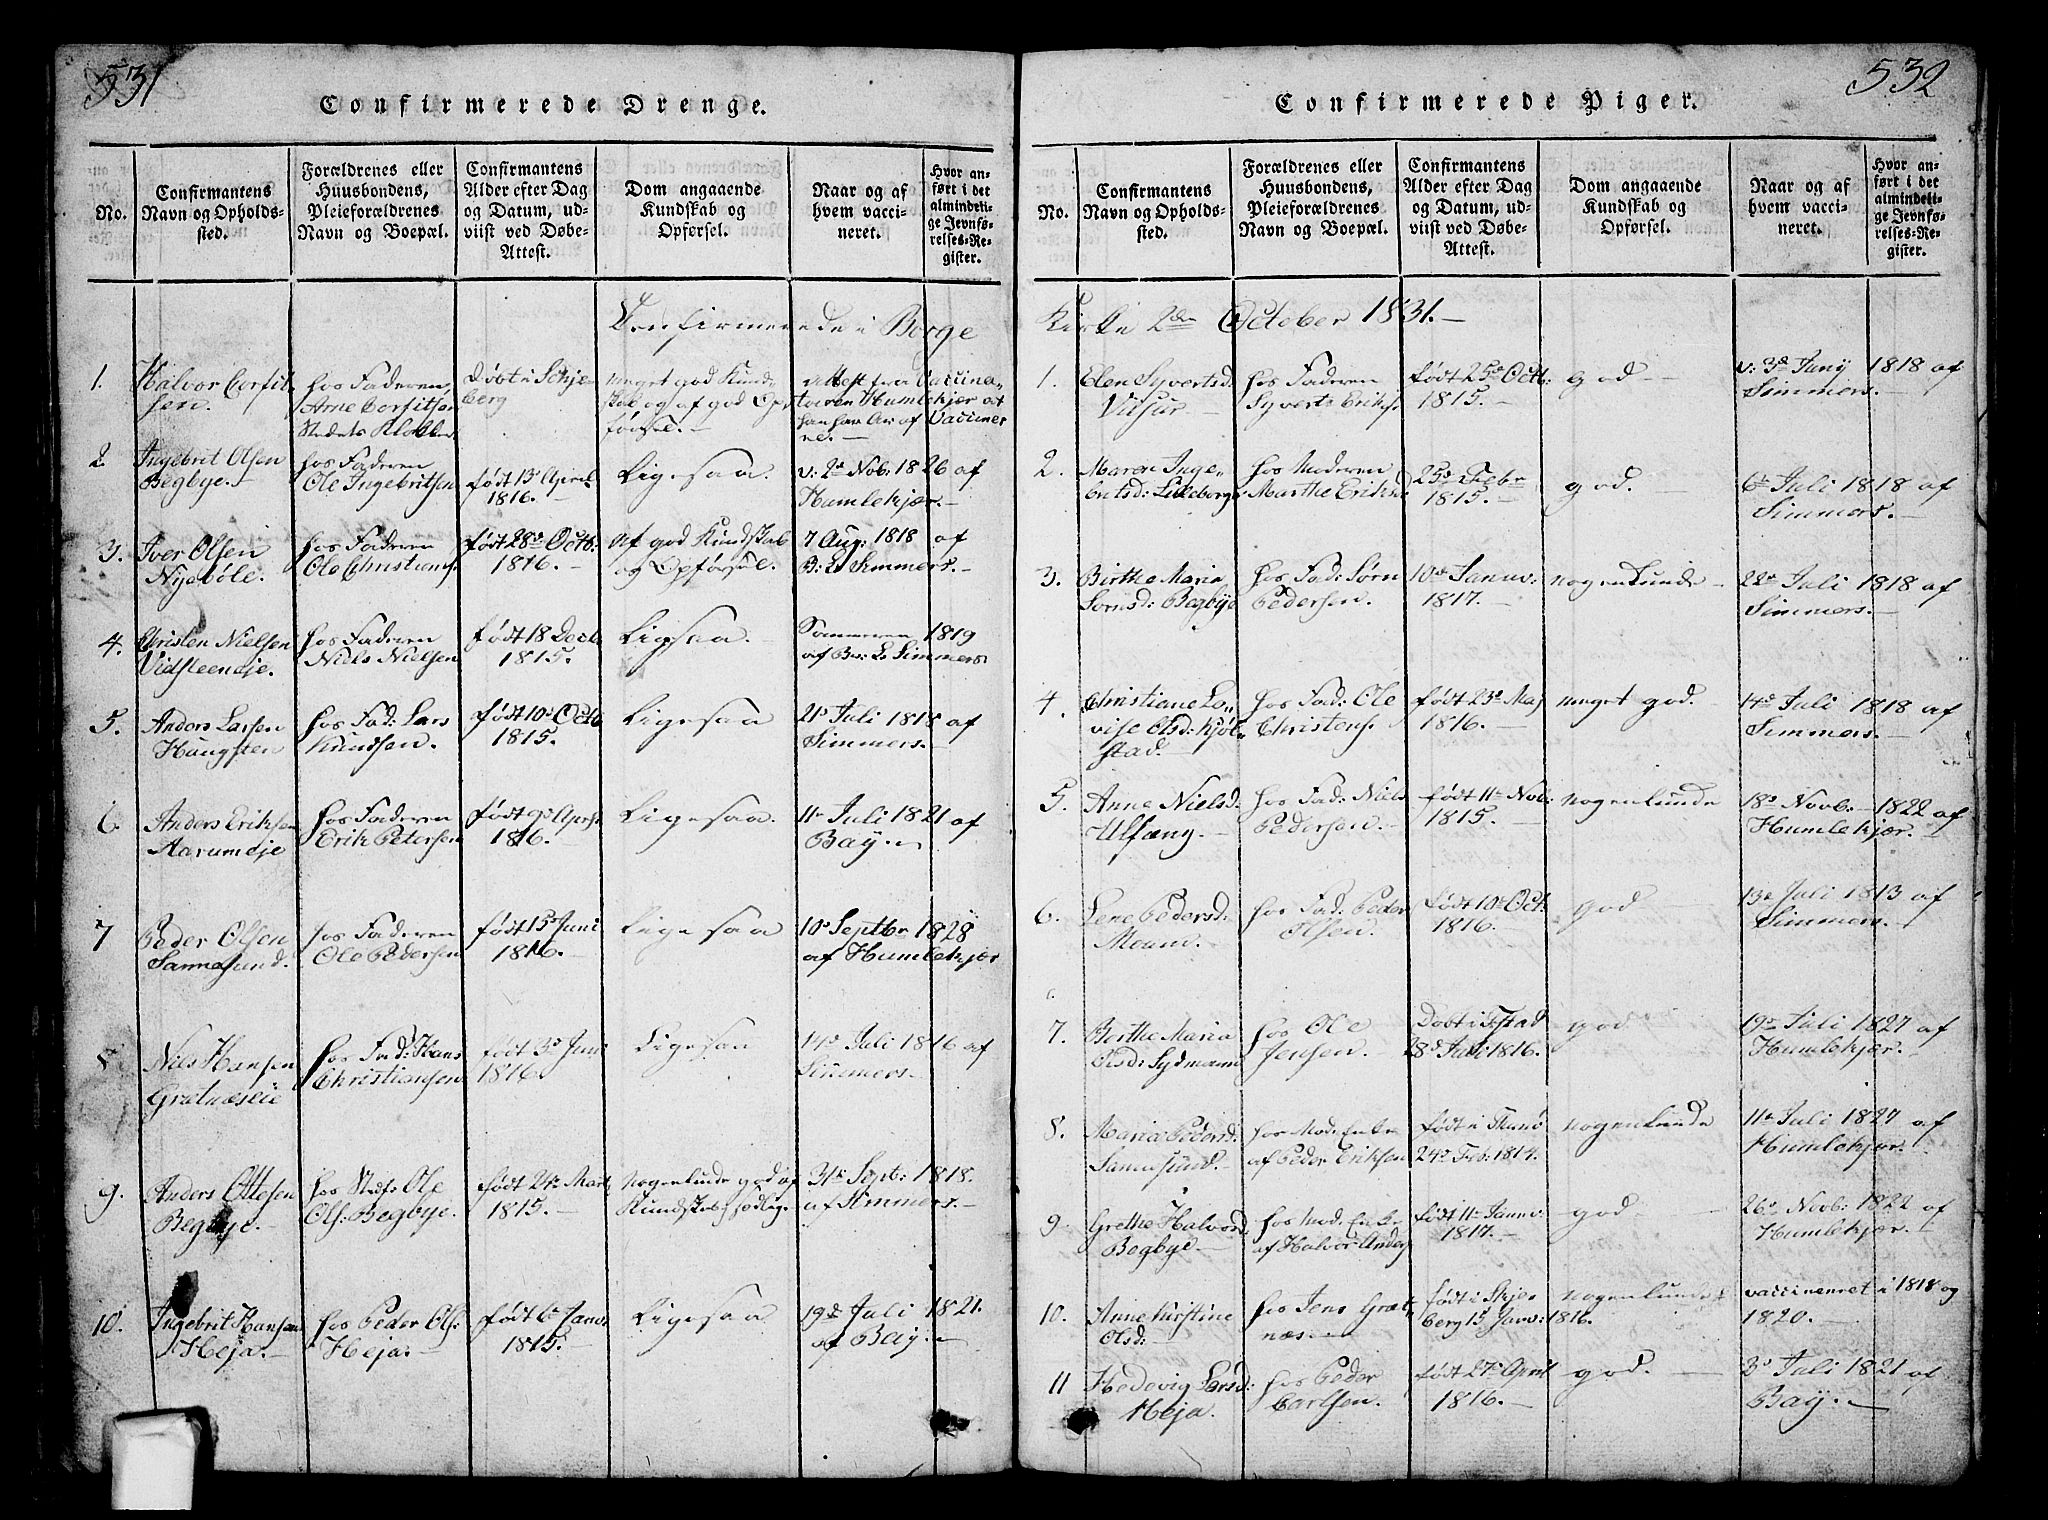 531
Confirmerede Drenge.
No.
Confirmantens
Navn og Opholds-
sted.
Forældrenes eller
Huusbondens,
Pleieforældrenes
Navn og Boepæl.
Confirmantens
Alder efter Dag
og Datum, ud-
viist ved Døbe-
Attest.
Dom angaaende
Kundskab og
Opførsel.
Naar og af
hvem vacci-
neret.
Hvor an-
ført i det
almindeli-
ge Jevnfø-
relses-Re-
gister.
Confirmerede i Borge
1.
Halvor Corfit
sen.
hos Faderen,
Arne Corfitsen
Døbt i Schje-
berg
meget god Kund-
skab og af god Op-
førsel.
Attest fra Vaccina-
teuren Humlekjær at
han har Ar af Vacciner
ne.
2
Ingebrit Olsen
Begbye.
hos Faderen
Ole Ingebritsen
født 13de April
1816.
Ligesaa.
v: 2d Nob: 1826 af
Humlekjær.
3.
Iver Olsen
Nyebøle.
hos Faderen
Ole Christians:
født 28de Octb:
1816.
Af god Kundskab
og Opførsel.
7 Aug: 1818 af
B: L. Simmers.
4.
Christen Nielsen
hos Faderen
Niels Nielsen
født 18 Decb
1815.
Ligesaa.
Sommeren 1819
af Br: L. Simmers
5.
Anders Larsen
Haugsten
hos Fad: Lars
Knudsen.
født 10de Octb
1815.
Ligesaa
21d Juli 1818 af
Simmers.
6
Anders Eriksen
Aarumeje
hos Faderen
Erik Petersen
født 9de April
1816.
Ligesaa.
11te Juli 1821 af
Bay.
7
Peder Olsen
Sannesund.
hos Faderen
Ole Pedersen
født 15de Juni
1816.
Ligesaa
10d Septbr 1828
af Humlekjær
8
Niels Hansen
hos Fad: Hans
Christiansen
født 3de Juni
1816.
Ligesaa
14d Juli 1816 af
Simmers.
9.
Anders Ottesen
Begbye.
hos Ole
Ols: Begbye.
født 24de Mart
1815.
Nogenlunde god af
Sept: 1818.
af Simmers.
10.
Ingebrit Hansen
Heja.
hos Peder Ols:
Heja.
født 6te Janv:
1815.
Ligesaa
19de Juli 1821.
af Bay.
532
Confirmerede Piger.
No.
Confirmantens
Navn og Opholds-
sted.
Forældrenes eller
Huusbondens,
Pleieforældrenes
Navn og Boepæl.
Confirmantens
Alder efter Dag
og Datum, ud-
viist ved Døbe-
Attest.
Dom angaaende
Kundskab og
Opførsel.
Naar og af
hvem vacci-
neret.
Hvor an-
ført i det
almindeli-
ge Jevnfø-
relses-Re-
gister.
Kirke 2den October 1831.
1.
Elen Syvertsd:
hos Faderen
Syverts Eriks:
født 25de Octb:
1815.
god
v: 3d Junij 1818 af
Simmers.
2.
Maren Inge-
britsd: Lilleborge
hos Moderen
Marthe Eriksd
25de Febr
1815.
god.
6te Juli 1818 af
Simmers.
3.
Birthe Maria
Sørnsd: Begbye
hos Fad: Sørn
Pedersen.
10de Januv:
1817.
nogenlunde
22de Juli 1818 af
Simmers.
4.
Christiane Lo-
vise Olsd: Kjøl-
stad.
hos Fad: Ole
Christens:
født 23de Maj
1816.
meget god.
14d Juli 1818 af
Simmers.
5.
Anne Nielsd:
Ulfæng.
hos Fad: Niels
Pedersen.
født 11te Nob:
1815.
nogenlunde
18d Novb: 1822 af
Humlekjær.
6.
Lene Pedersd:
Moum.
hos Fad: Peder
Olsen.
født 10de Oct:
1816.
god
13d Juli 1813 af
Simmers.
7.
Berthe Maria
Olsd: Sydmoum
hos Ole
Jensen.
Døbt i Fstad
28d Juli 1816.
god
19d Juli 1827 af
Humlekjær.
8.
Maria Pedersd:
Sannesund.
hos Mod: Enke
af Peder Eriksen
født i Thunø
24d Feb: 1814.
nogenlunde
11te Juli 1827 af
Humlekjær.
9
Grethe Halvorsd
Begbye.
hos Mod. Enke
af Halvor Anders
født 11te Janv:
1817.
god
26d Novb: 1822 af
Humlekjær.
10.
Anne Kirstine
Olsd:
hos Jens Græt-
næs.
født i Skje-
berg 15 Janv: 1816.
nogenlunde
vaccineret i 1818 og
1820.
11
Hedevig Larsd:
Heja.
hos Peder
Carlsen.
født 27de April
1816.
god.
3d Juli 1821 af
Bay.